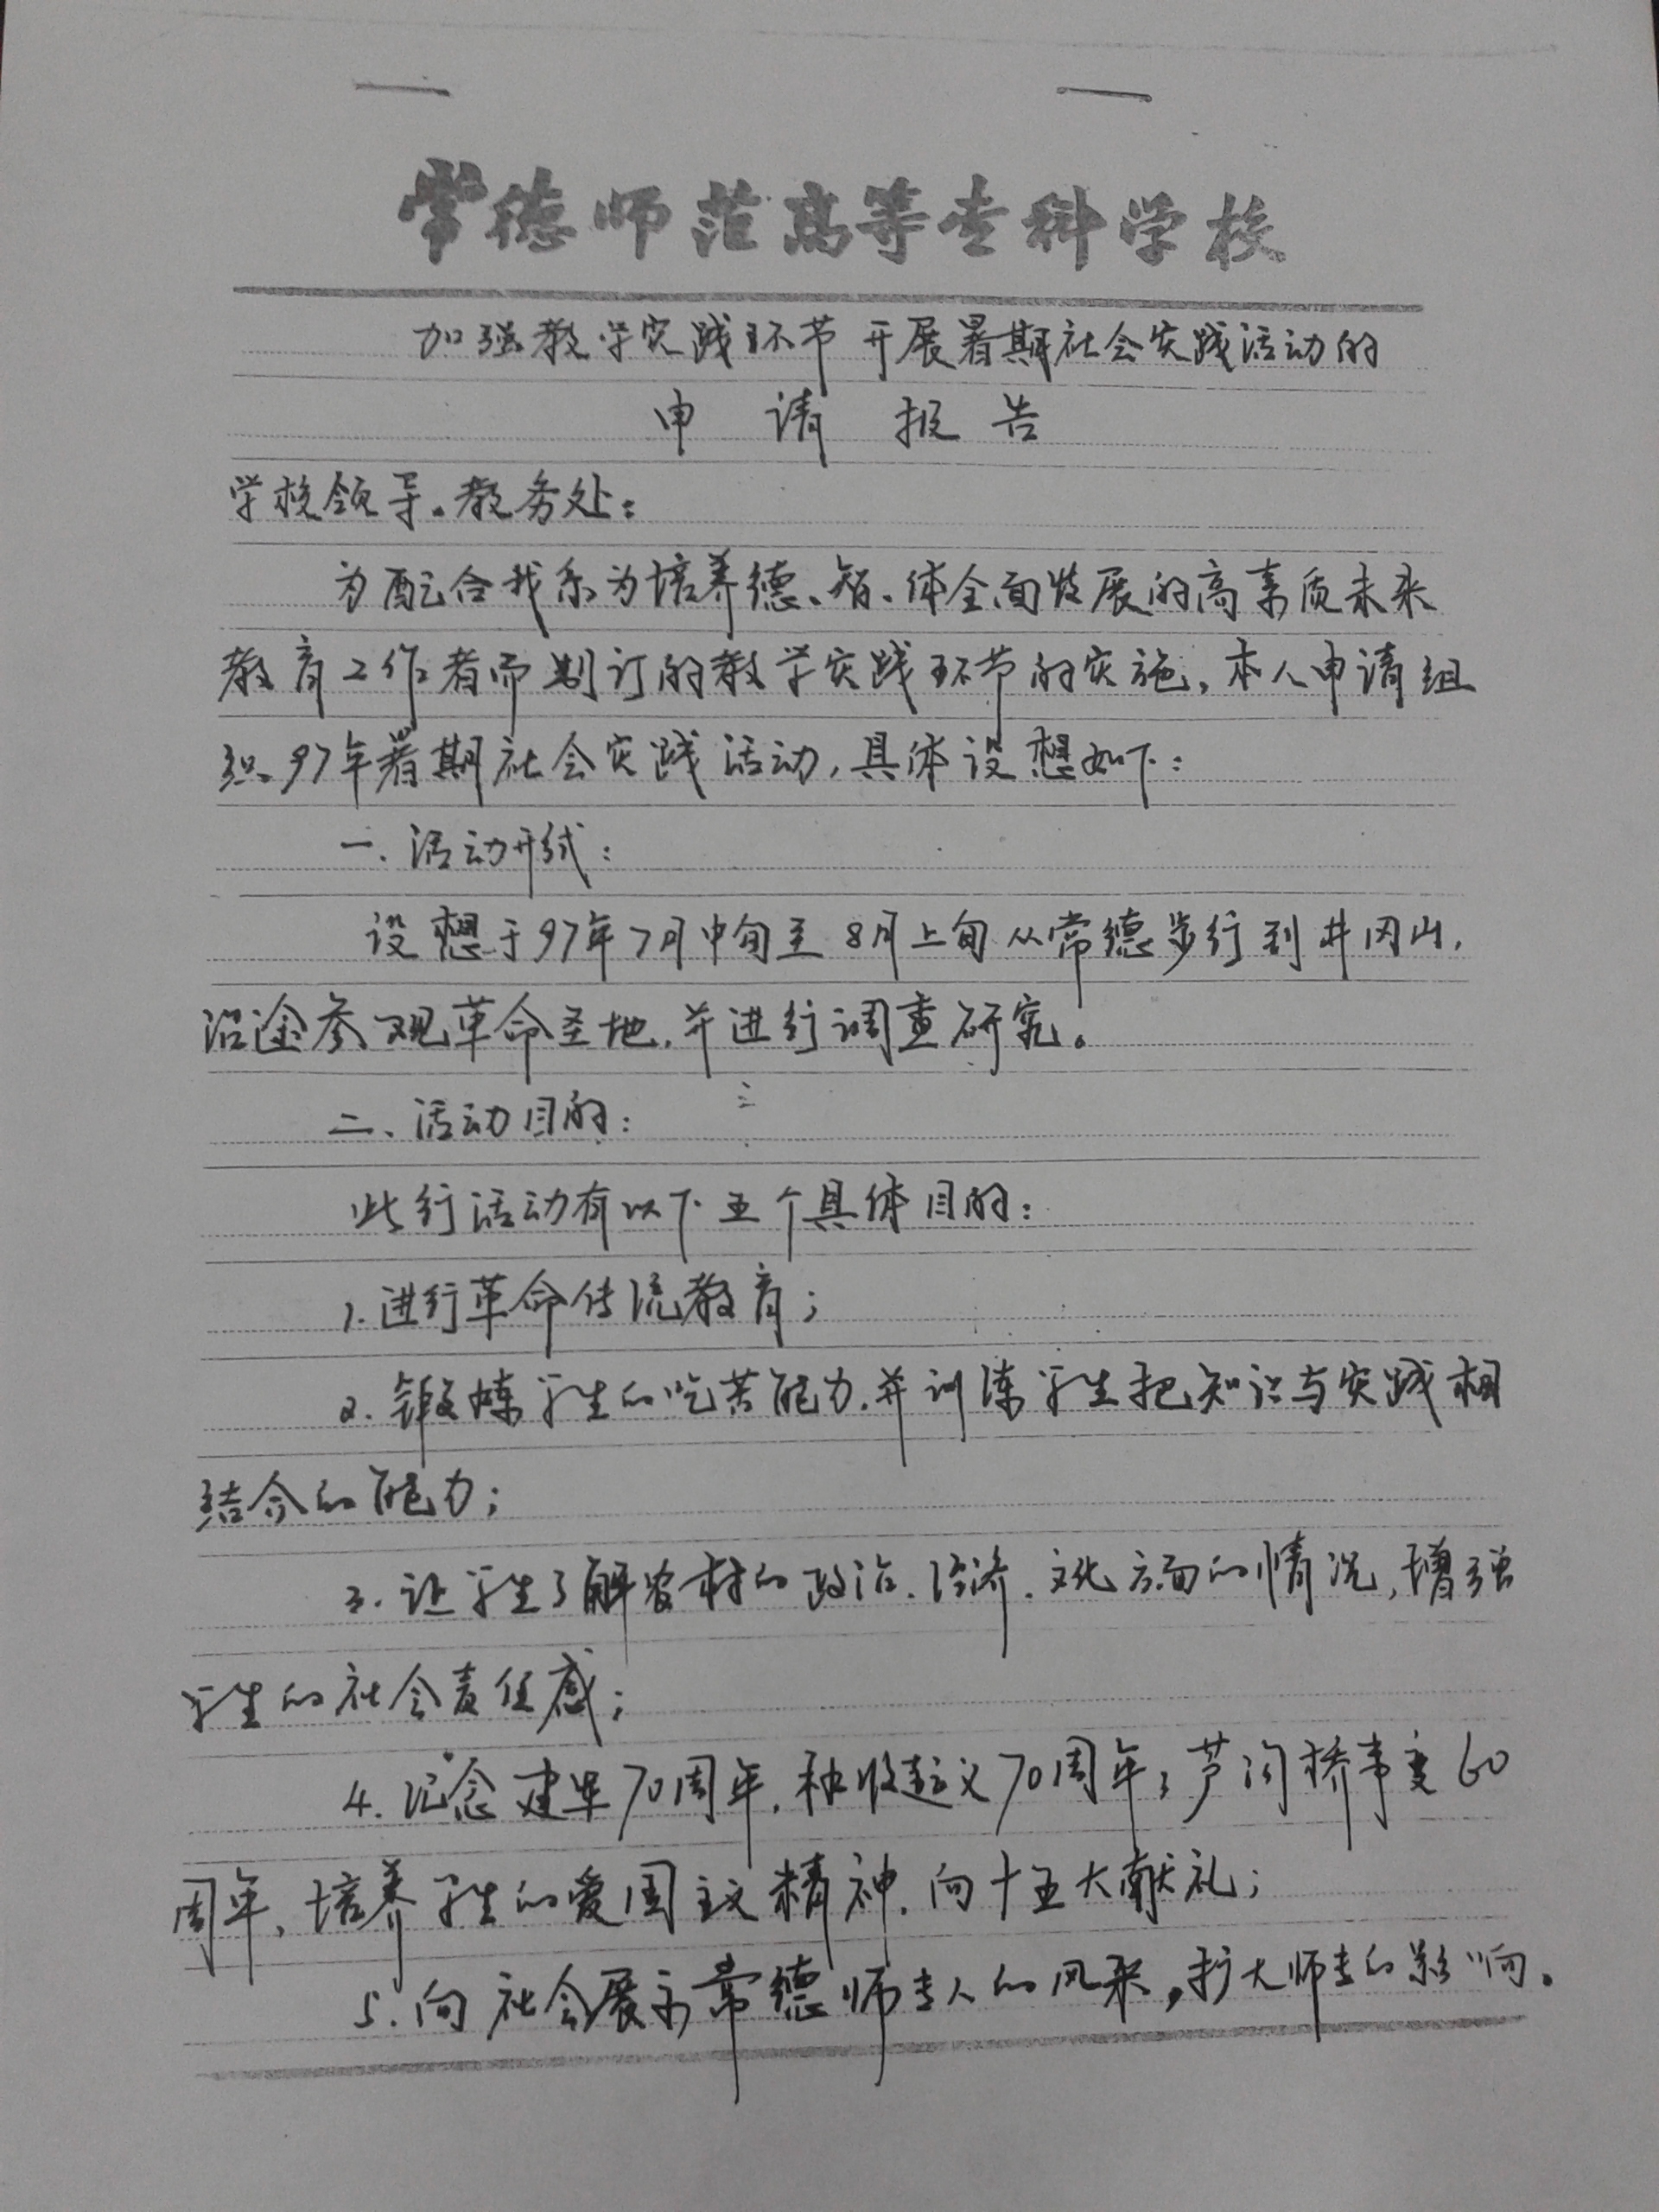 常德师范高等专科学校
加强教学实践环节 开展暑期社会实践活动的
申请报告
学校领导。教务处:
为配合我系为培养德、智、体全面发展的高素质未来
教育工作者而制订的教学实践环节的实施,本人申请组
织97年暑期社会实践活动,具体设想如下:
一、活动形式:
设想于97年7月中旬至8月上旬从常德步行到井冈山,
沿途参观革命圣地,并进行调查研究。
二、活动目的:
此行活动有以下五个具体目的:
1.进行革命传统教育;
2.锻炼学生的吃苦能力,并训练学生把知识与实践相
结合的能力;
3.让学生了解农村的政治、经济、文化方面的情况,增强
学生的社会责任感;
4.纪念建军70周年,秋收起义70周年,芦沟桥事变60
周年,培养学生的爱国主义精神,向十五大献礼;
5.向社会展示常德师专人的风采,扩大师专的影响。